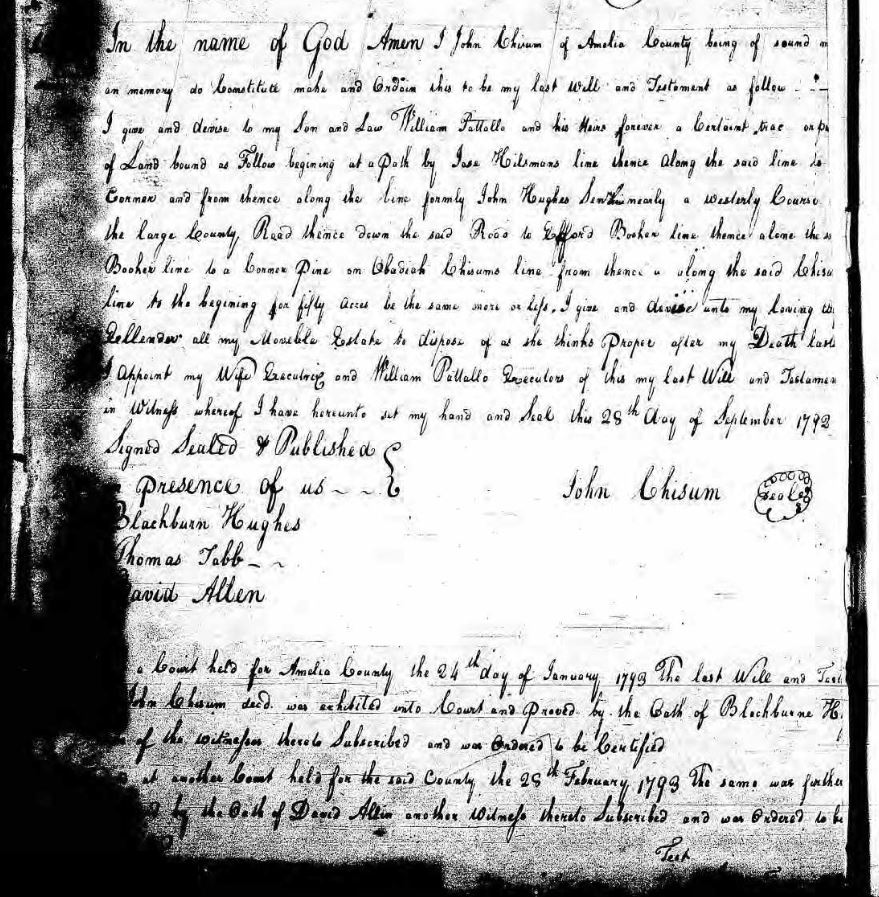 In the name of God Amen I John Chisum of Amelia County being of sound
an memory do Constitute make and Ordain this to be my last Will and Testament as follow
I give and devise to my Son and Law William Pattallo and his Heirs forever a Certaint trac or
of Land bound as Follow begining at a path by Hilsmans line thence along the said line to
Corner and from thence along the line formly John Hughes nearly a westerly Course
the large County Road thence down the said Road to Efford Booker line thence alone the
Booker line to a Corner Pine on Obadiah Chisums line from thence a along the said Chisu
line to the begining for fifty acres be the same more or less. I give and devise unto my loving
Gellender all my Moveble Estate to dispose of as she thinks Proper after my Death
I Appoint my Wife Executrix and William Pattallo Executors of this my last Will and Testamen
in Witness whereof I have hereunto set my hand and Seal this 28th day of September 1792
Signed Sealed & Published
presence of us
John Chisum
Seal
Blackburn Hughes
Thomas Tabb
David Allen
a Court held for Amelia County the 24th day of January 1793 The last Will and
John Chisum decd. was exhibited into Court and Proved by the Oath of Blackburne H
of the witnesses thereto Subscribed and was Ordered to be Certified
at another Court held for the said County the 28th February 1793 The same was further
by the Oath of David Allin another Witness thereto Subscribed and was Ordered to be
Test